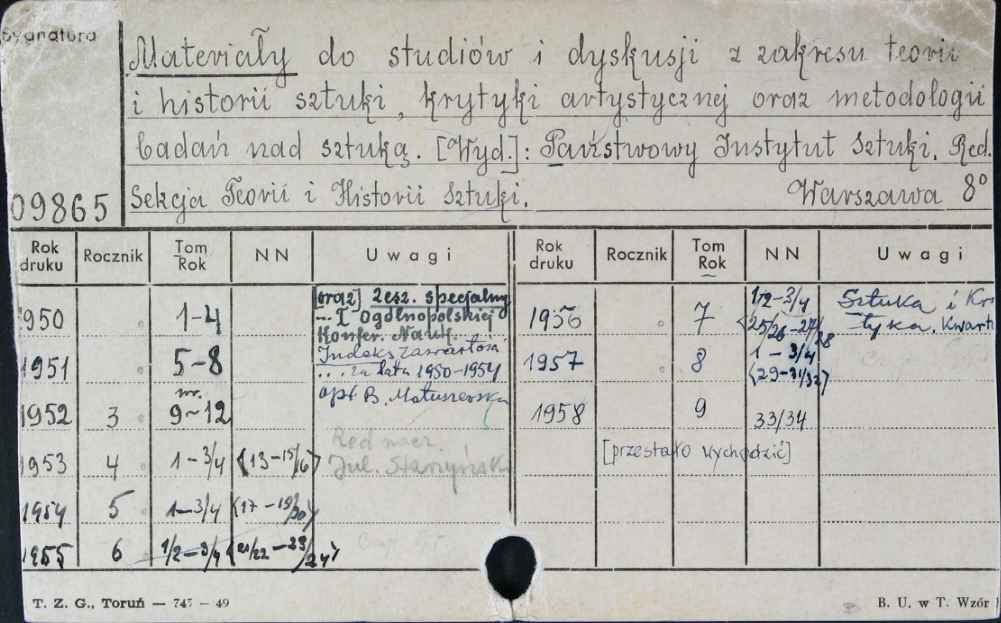 Sygnatura
Materiały do studiów i dyskusji z zakresu teorii
i historii sztuki, krytyki artystycznej oraz metodologii
badań nad sztuką. [Wyd.]: Państwowy Instytut Sztuki. Red.
Sekcja Teorii i Historii Sztuki. Warszawa 8°
09865
Rok druku Rocznik Tom Rok NN Uwagi Rok druku Rocznik Tom Rok NN Uwagi
1950 1-4
[oraz] Zesz. specjalny
... I Ogólnopolskiej
Konfer. Nauk. ...
1951 5-8
Indeks zawartości
... za lata 1950-1954
opr. B. Matuszewska
1952 3 nr. 9-12
1953 4 1-3/4 (13-15/16)
Red. nacz.
Jul. Starzyński
1954 5 1-3/4 (17-19/20)
1955 6 1/2-3/4 (21/22-23/24)
1956 7 1/2-3/4 (25/26-27/28
Sztuka i Kry
tyka. Kwart
1957 8 1-3/4 (29-31/32)
1958 9 33/34
[przestało wychodzić]
T. Z. G., Toruń — 747 — 49
B. U. w T. Wzór